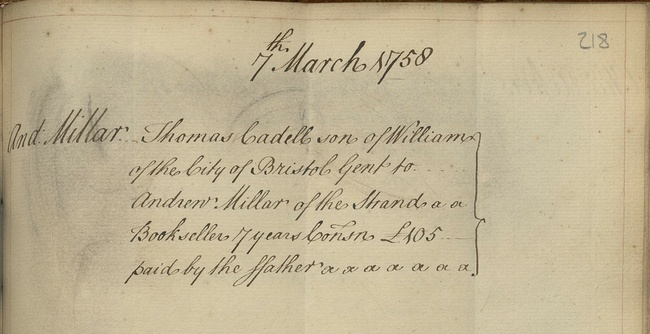 218
7th March 1758
And. Millar Thomas Cadell son of William
of the City of Bristol Gent to
Andrew Millar of the Strand a a
Bookseller 7 years Consn £105
paid by the ffather a a a a a a a